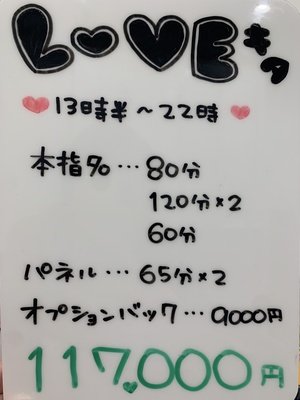 LOVEキタ
13時半～22時
本指%…80分
120分×2
60分
パネル…65分×2
オプションバック…9000円
117,000円